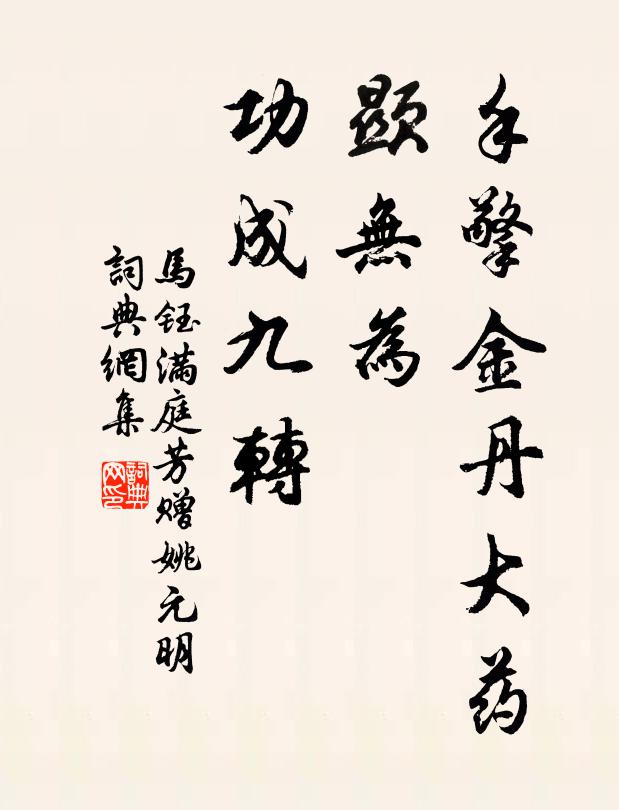 手擎金丹大药
顯無為
功成九轉
馬鈺满庭芳赠姚元明
詞典網集
詞典网印